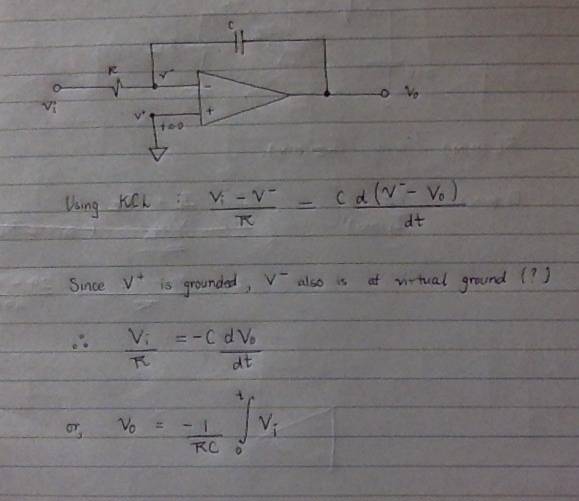 C
R V⁻
Vi − Vo
V⁺ +
t=0
Using KCL : Vi − V⁻ / R = C d(V⁻ − Vo) / dt
Since V⁺ is grounded, V⁻ also is at virtual ground (?)
∴ Vi / R = −C dVo / dt
or, Vo = −1 / RC ∫₀ᵗ Vi